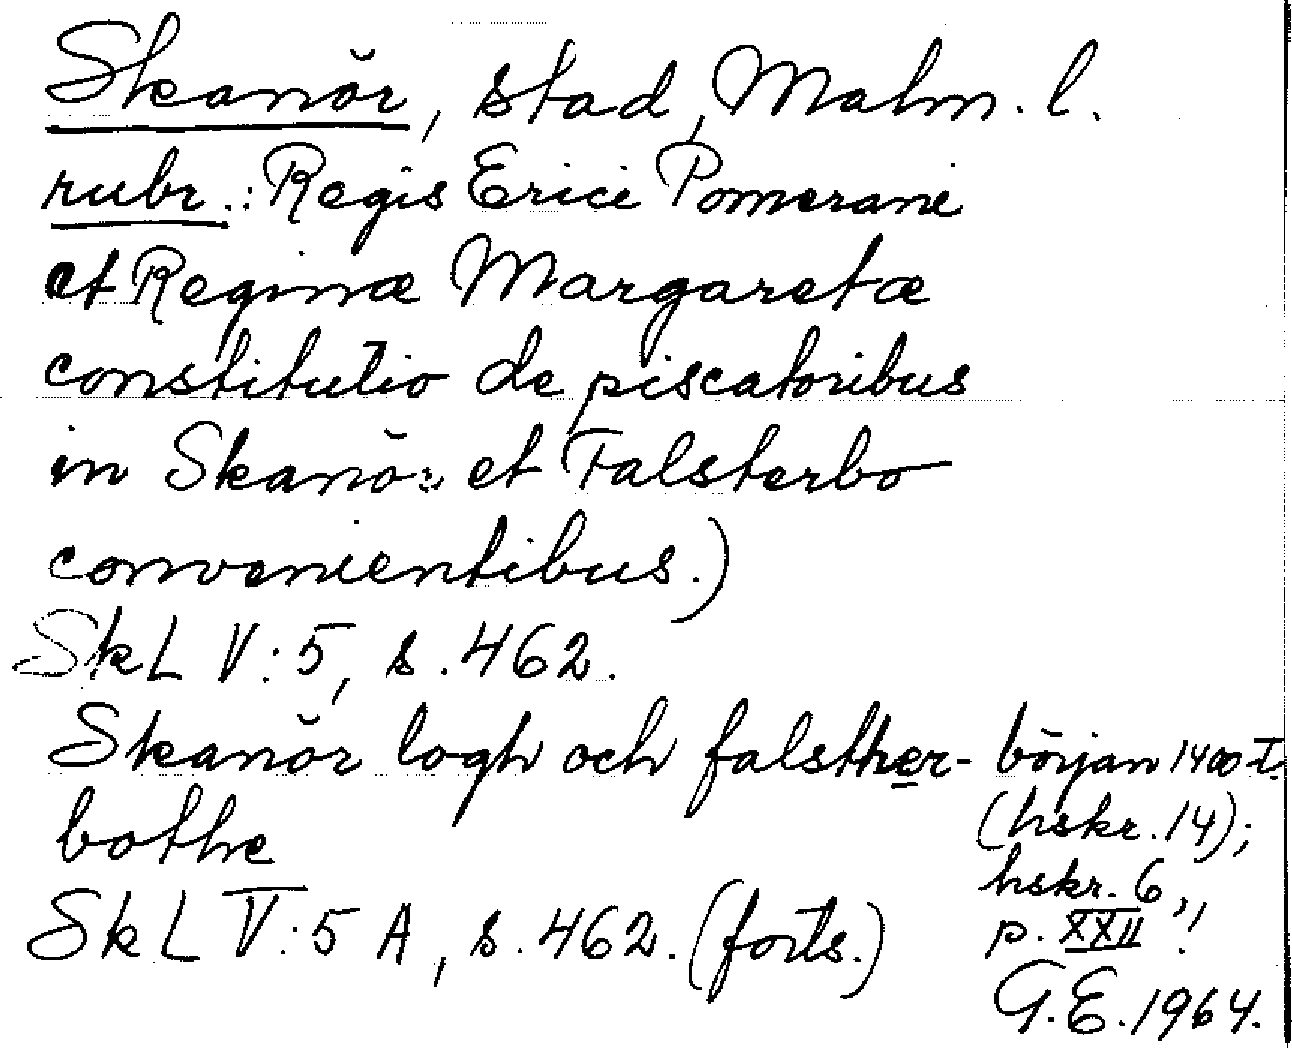 Skanör, stad, Malm. l.
rubr.: Regis Erici Pomerani
et Reginæ Margaretæ
constitutio de piscatoribus
in Skanör et Falsterbo
convenientibus.)
SkL V:5, s. 462.
Skanör logh och falsther-
bothe
SkL V:5 A, s. 462. (forts.)
början 1400-t.
(hskr. 14);
hskr. 6,
p. XXII!
G.E. 1964.